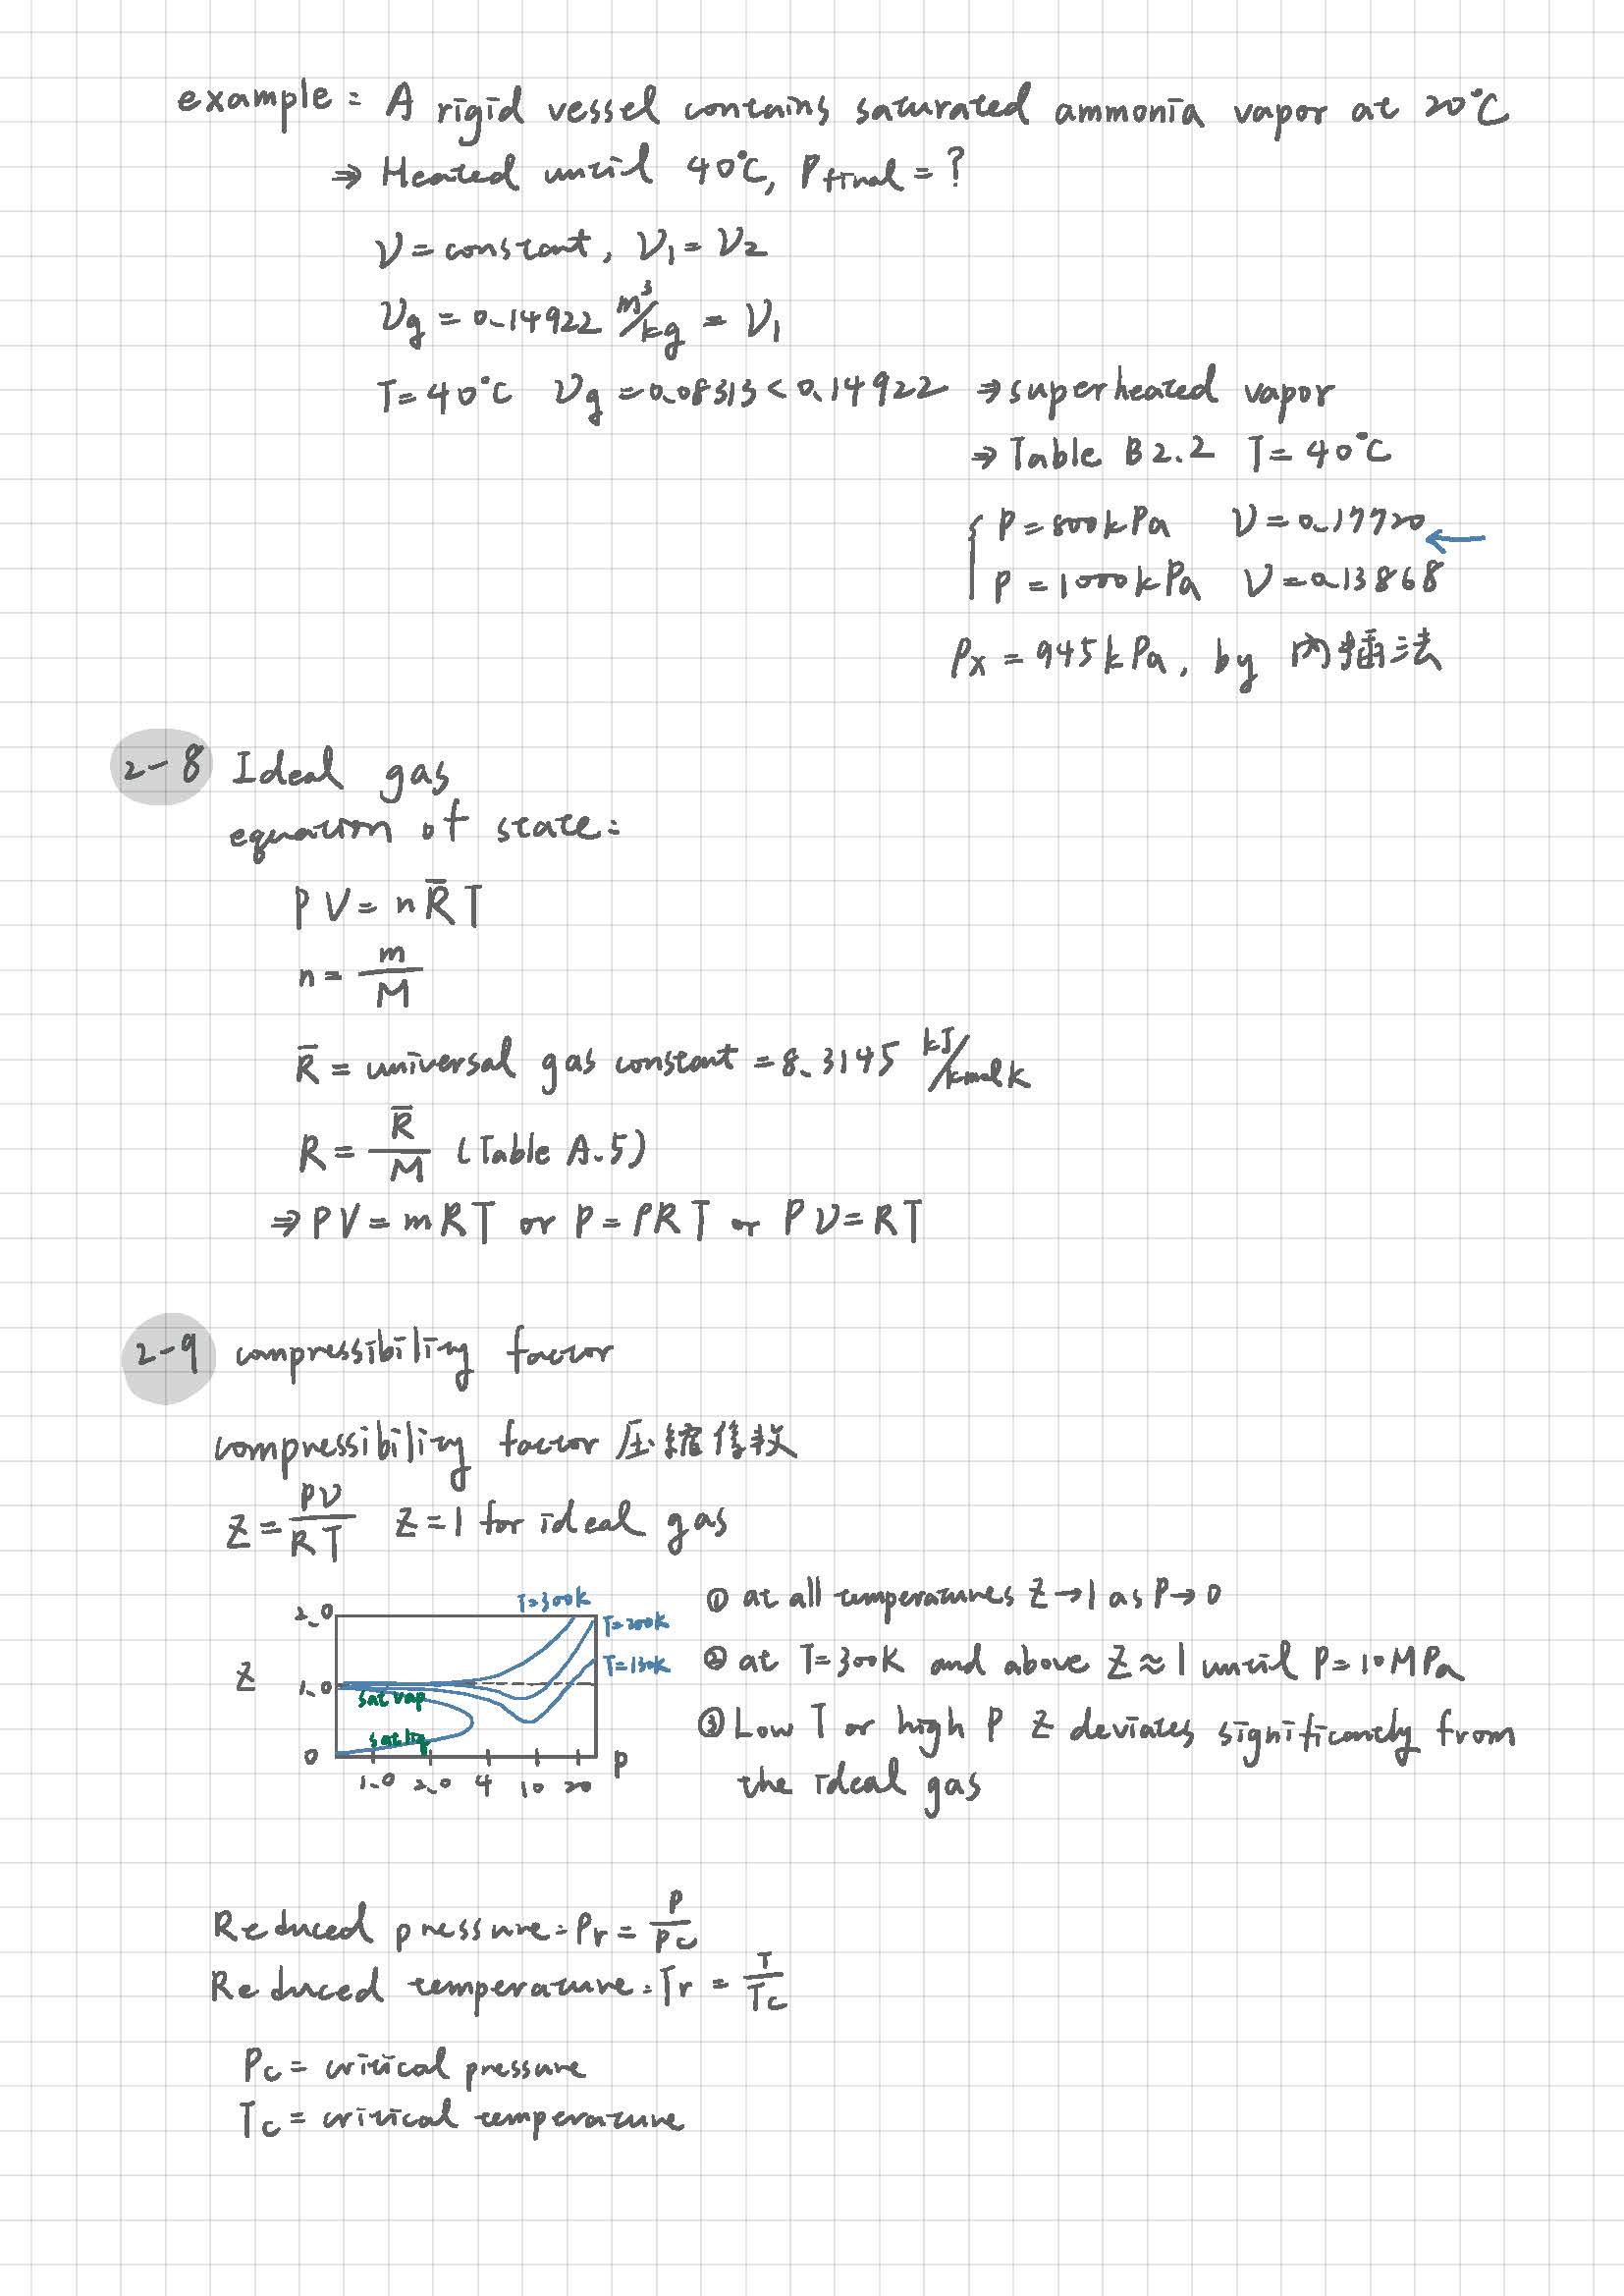 example: A rigid vessel contains saturated ammonia vapor at 20°C
⇒ Heated until 40°C, Pfinal = ?
ν = constant, ν₁ = ν₂
νg = 0.14922 m³/kg = ν₁
T = 40°C νg = 0.08313 < 0.14922 ⇒ superheated vapor
⇒ Table B2.2 T = 40°C
P = 800 kPa ν = 0.17720 ←
P = 1000 kPa ν = 0.13868
Px = 945 kPa, by 內插法
2-8 Ideal gas
equation of state:
PV = nR̄T
n = m/M
R̄ = universal gas constant = 8.3145 kJ/kmol k
R = R̄/M (Table A.5)
⇒ PV = mRT or P = ρRT or Pν = RT
2-9 compressibility factor
compressibility factor 压縮係数
Z = Pν/RT Z = 1 for ideal gas
T=300K
2.0
T=200K
T=130K
Z
1.0
sat vap
sat liq
0
P
1.0 2.0 4 10 20
① at all temperatures Z → 1 as P → 0
② at T = 300K and above Z ≈ 1 until P = 10 MPa
③ Low T or high P Z deviates significantly from
the ideal gas
Reduced pressure: Pr = P/Pc
Reduced temperature: Tr = T/Tc
Pc = critical pressure
Tc = critical temperature